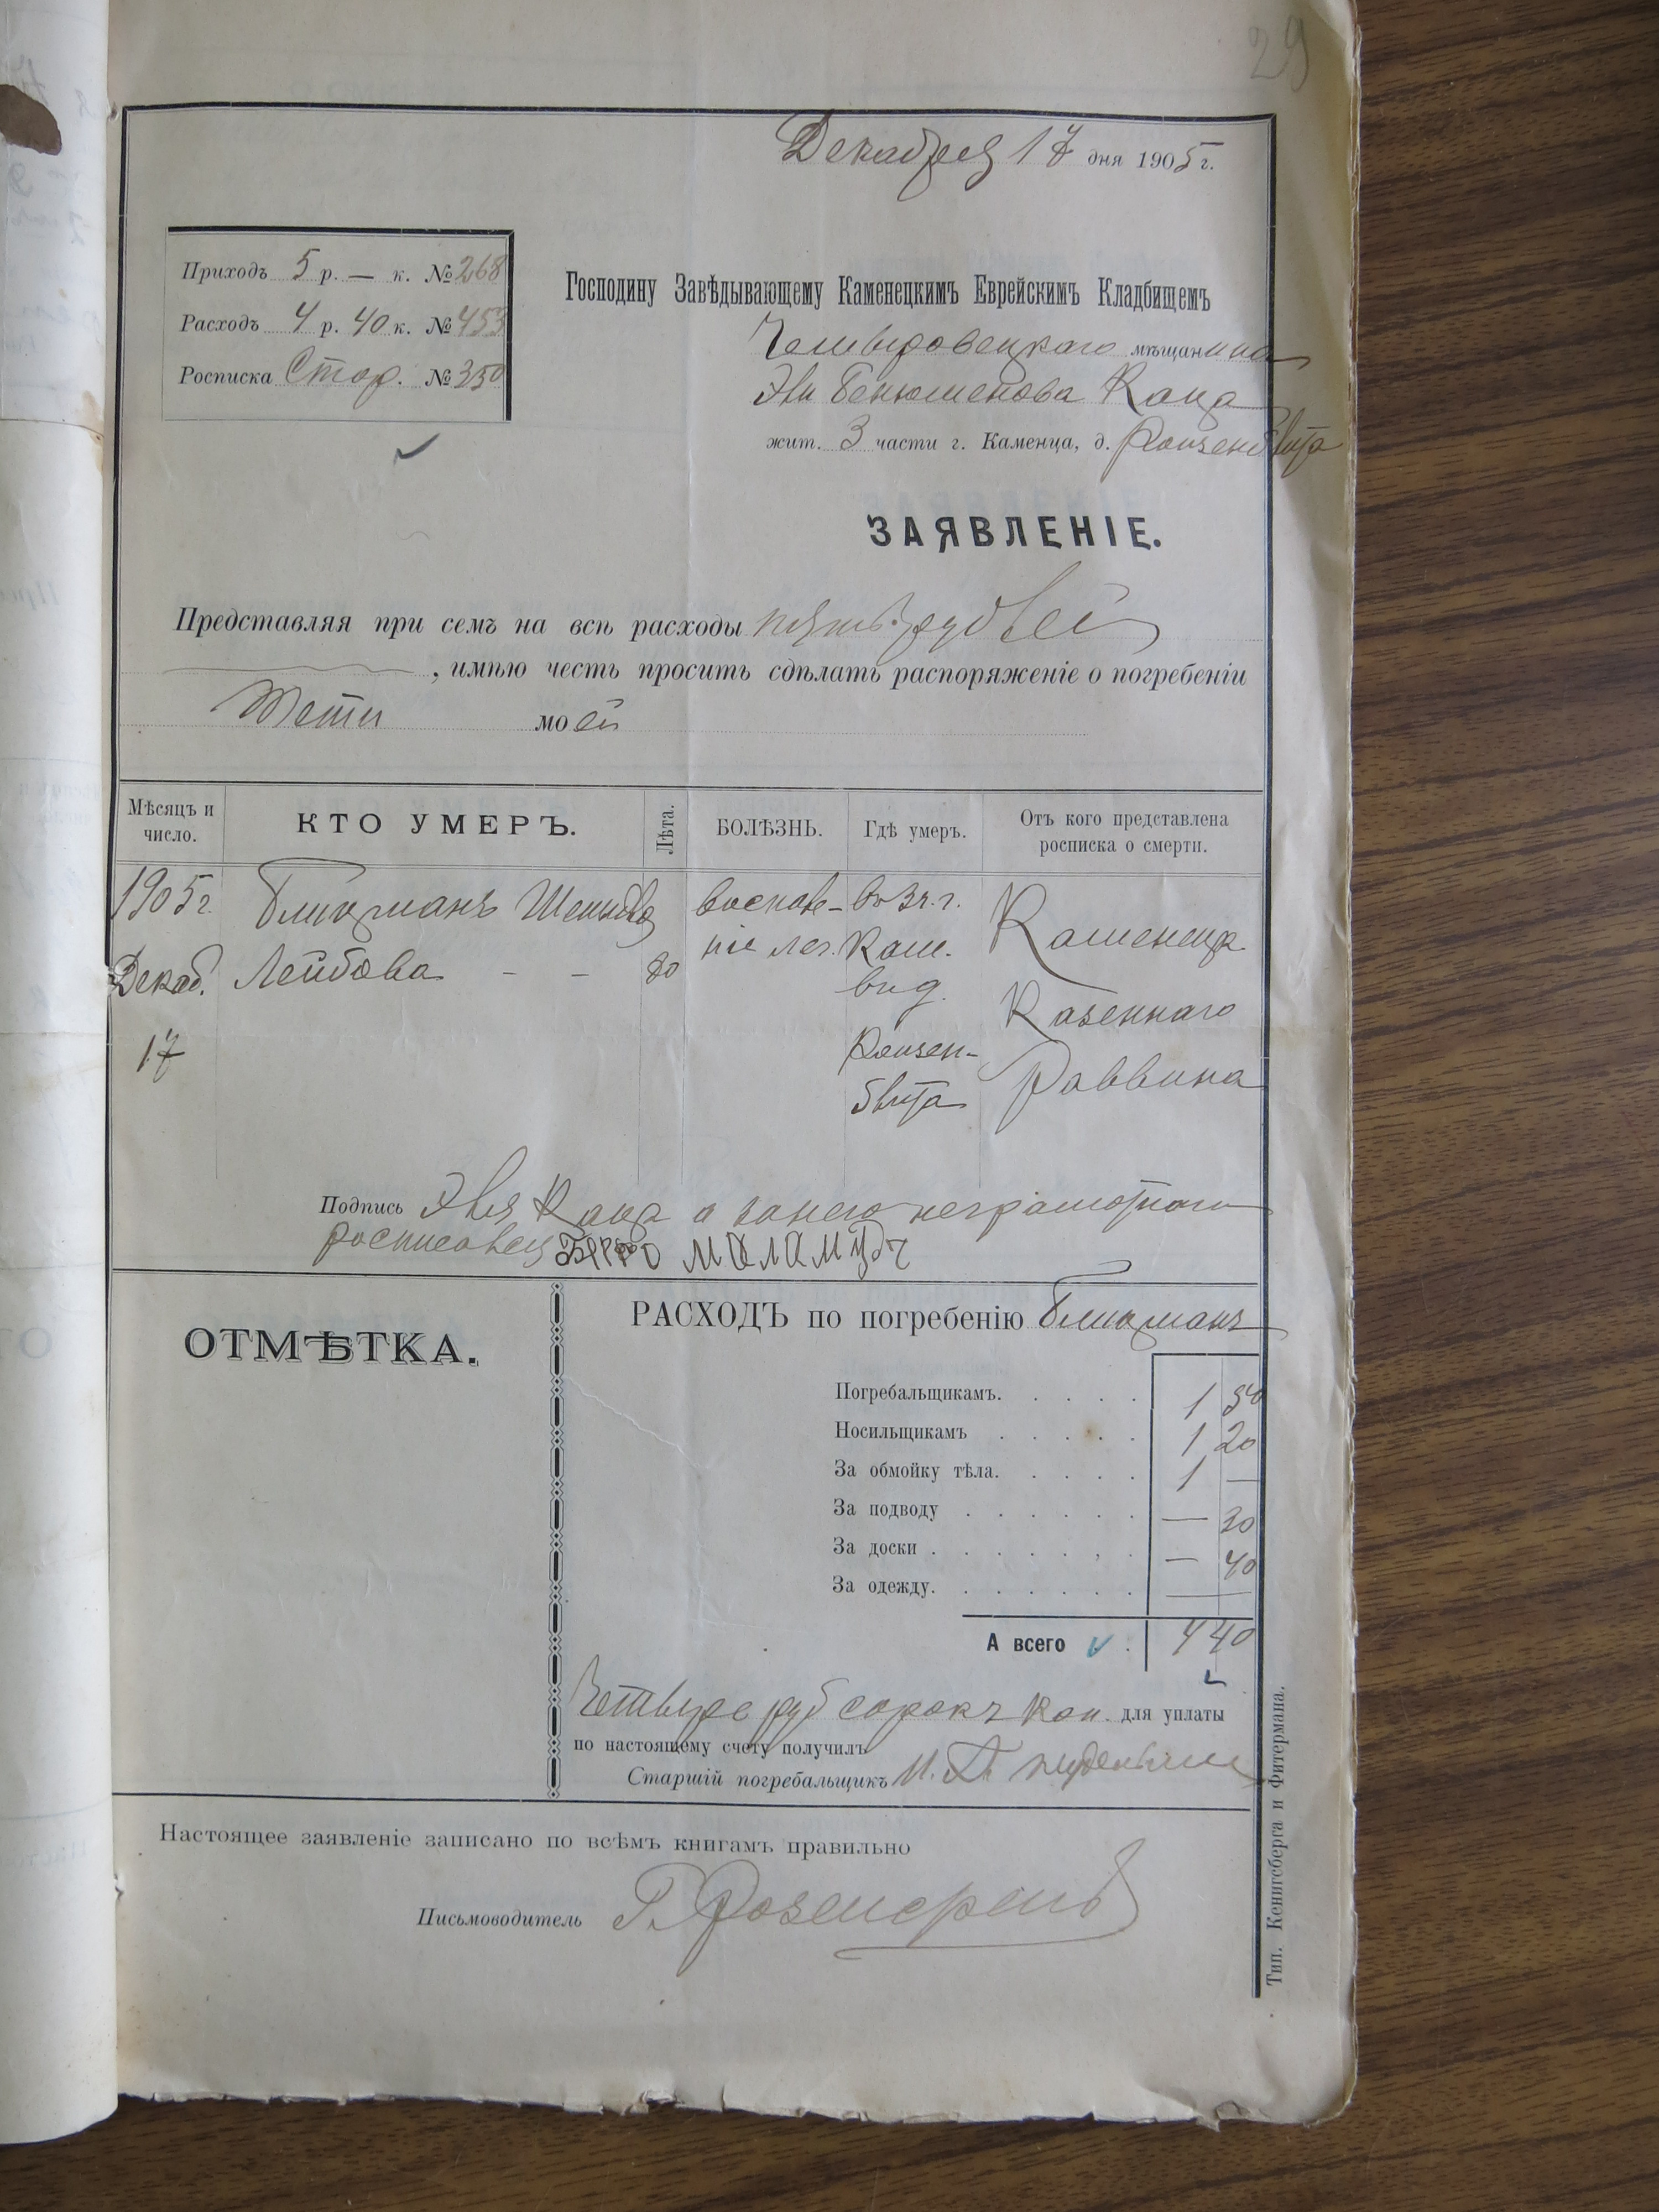 29
Декабря 17 дня 1905 г.
Приходъ 5 р. — к. № 268
Расходъ 4 р. 40 к. № 453
Росписка Стор. № 350
Господину Завѣдывающему Каменецкимъ Еврейскимъ Кладбищемъ
мѣщанина
Каца
жит. 3 части г. Каменца, д.
ЗАЯВЛЕНІЕ.
Представляя при семъ на всѣ расходы пять рублей
, имѣю честь просить сдѣлать распоряженіе о погребеніи
Тети моей
Мѣсяцъ и число.
КТО УМЕРЪ.
Лѣта.
БОЛѢЗНЬ.
Гдѣ умеръ.
Отъ кого представлена росписка о смерти.
1905 г.
Декаб.
17
Лейбова - -
80
воспале-
ніе лег.
въ 3 ч. г.
Каме.
в д.
Каменецк.
Казеннаго
Раввина
Подпись Эля Кацъ а за него неграмотнаго
росписался
РАСХОДЪ по погребенію
ОТМѢТКА.
Погребальщикамъ. . . . . 1 50
Носильщикамъ . . . . . 1 20
За обмойку тѣла. . . . . 1 —
За подводу . . . . . . — 30
За доски . . . . . . . — 40
За одежду. . . . . . . —
А всего . 4 40
Четыре руб сорокъ коп. для уплаты
по настоящему счету получилъ
Старшій погребальщикъ
Настоящее заявленіе записано по всѣмъ книгамъ правильно
Письмоводитель
Тип. Кенигсберга и Фитермана.